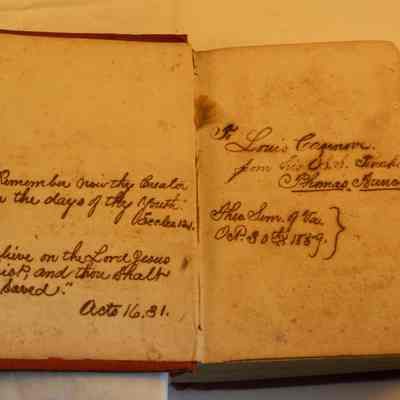 Remember now thy Creator
in the days of thy Youth."
Eccles 12.1.
lieve on the Lord Jesus
rist, and thou shalt
saved."
Acts 16.31.
To
Louis Cazenove.
from his
Thomas
Theo. Sem. of Va.
Oct. 30th 1859.